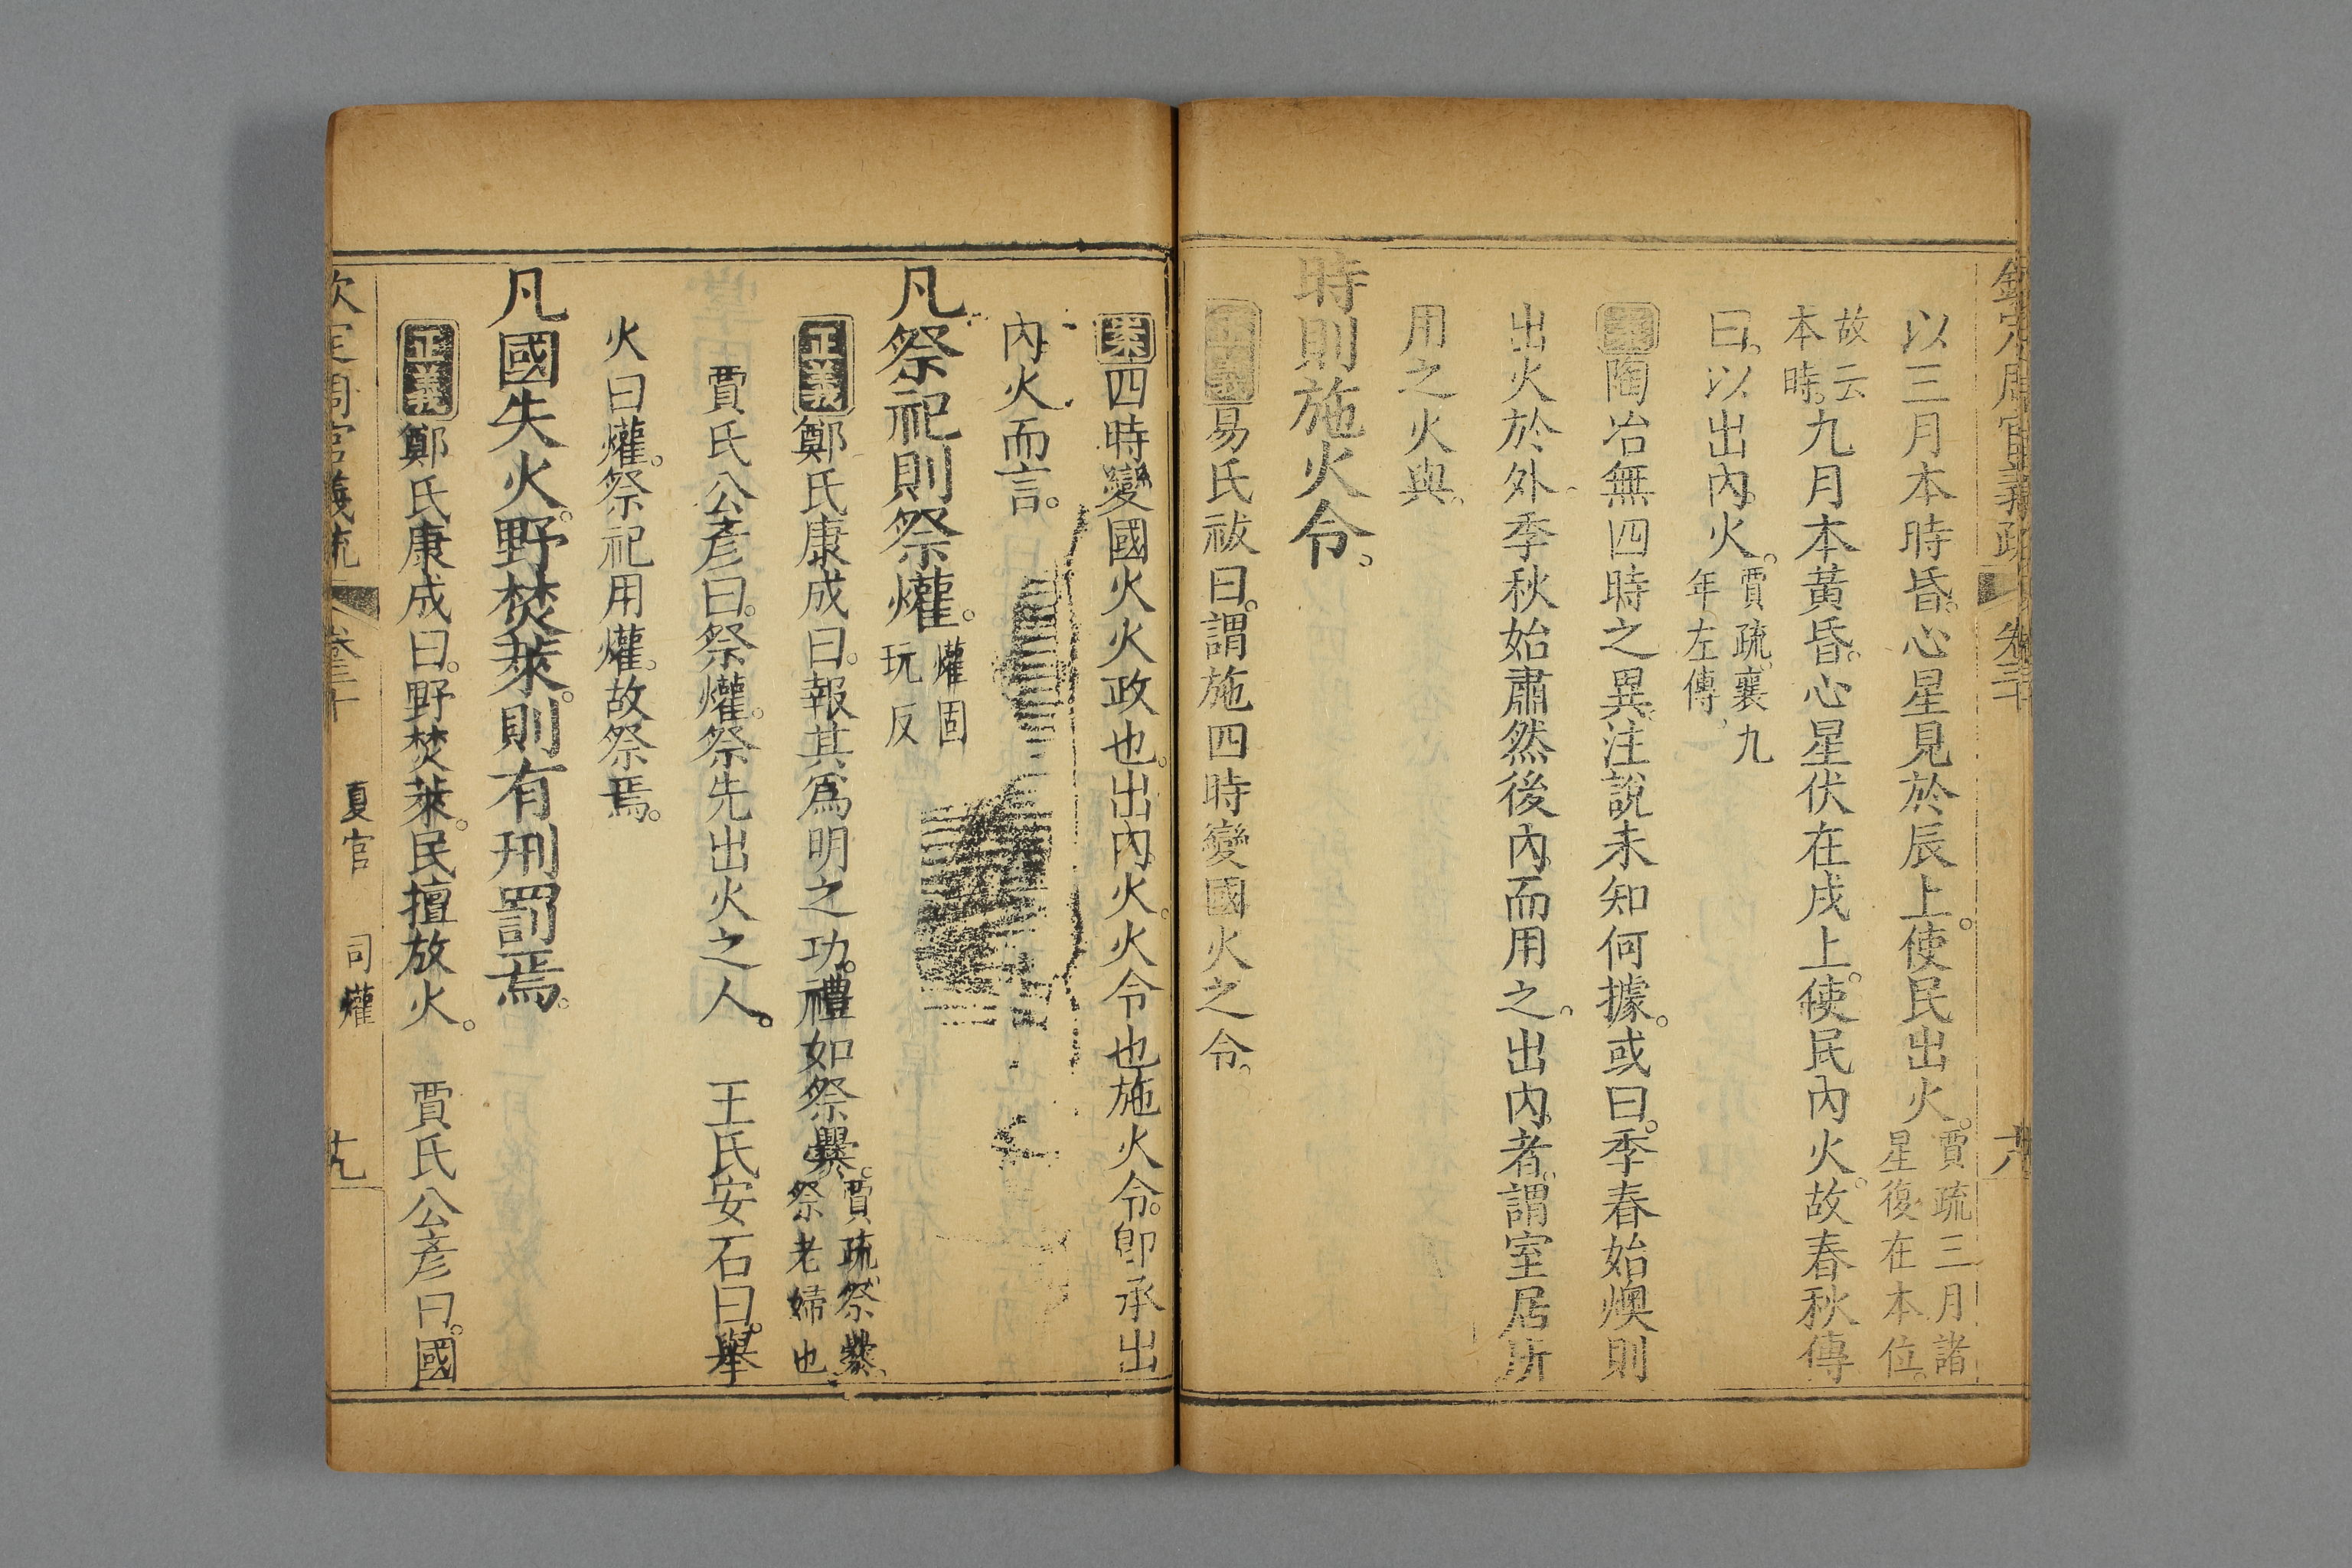 欽定周官義疏 卷三十 十八
以三月本時昏。心星見於辰上。使民出火。賈疏三月諸星復在本位。
故云本時。九月本黃昏。心星伏在戌上。使民內火。故春秋傳
曰。以出內火。賈疏。襄九年左傳。
案陶冶無四時之異。注說未知何據。或曰。季春始燠則
出火於外。季秋始肅然後內而用之。出內者。謂室居所
用之火與。
時則施火令。
正義易氏祓曰。謂施四時變國火之令。
案四時變國火火政也。出內火。火令也施火令。卽承出
內火而言。
凡祭祀則祭爟。爟固玩反
正義鄭氏康成曰。報其爲明之功。禮如祭爨。賈疏。祭爨。祭老婦也
賈氏公彥曰。祭爟。祭先出火之人。 王氏安石曰。舉
火曰爟。祭祀用爟。故祭焉。
凡國失火。野焚萊。則有刑罰焉。
正義鄭氏康成曰。野焚萊。民擅放火。 賈氏公彥曰。國
欽定周官義疏 卷三十 夏官 司爟 十九